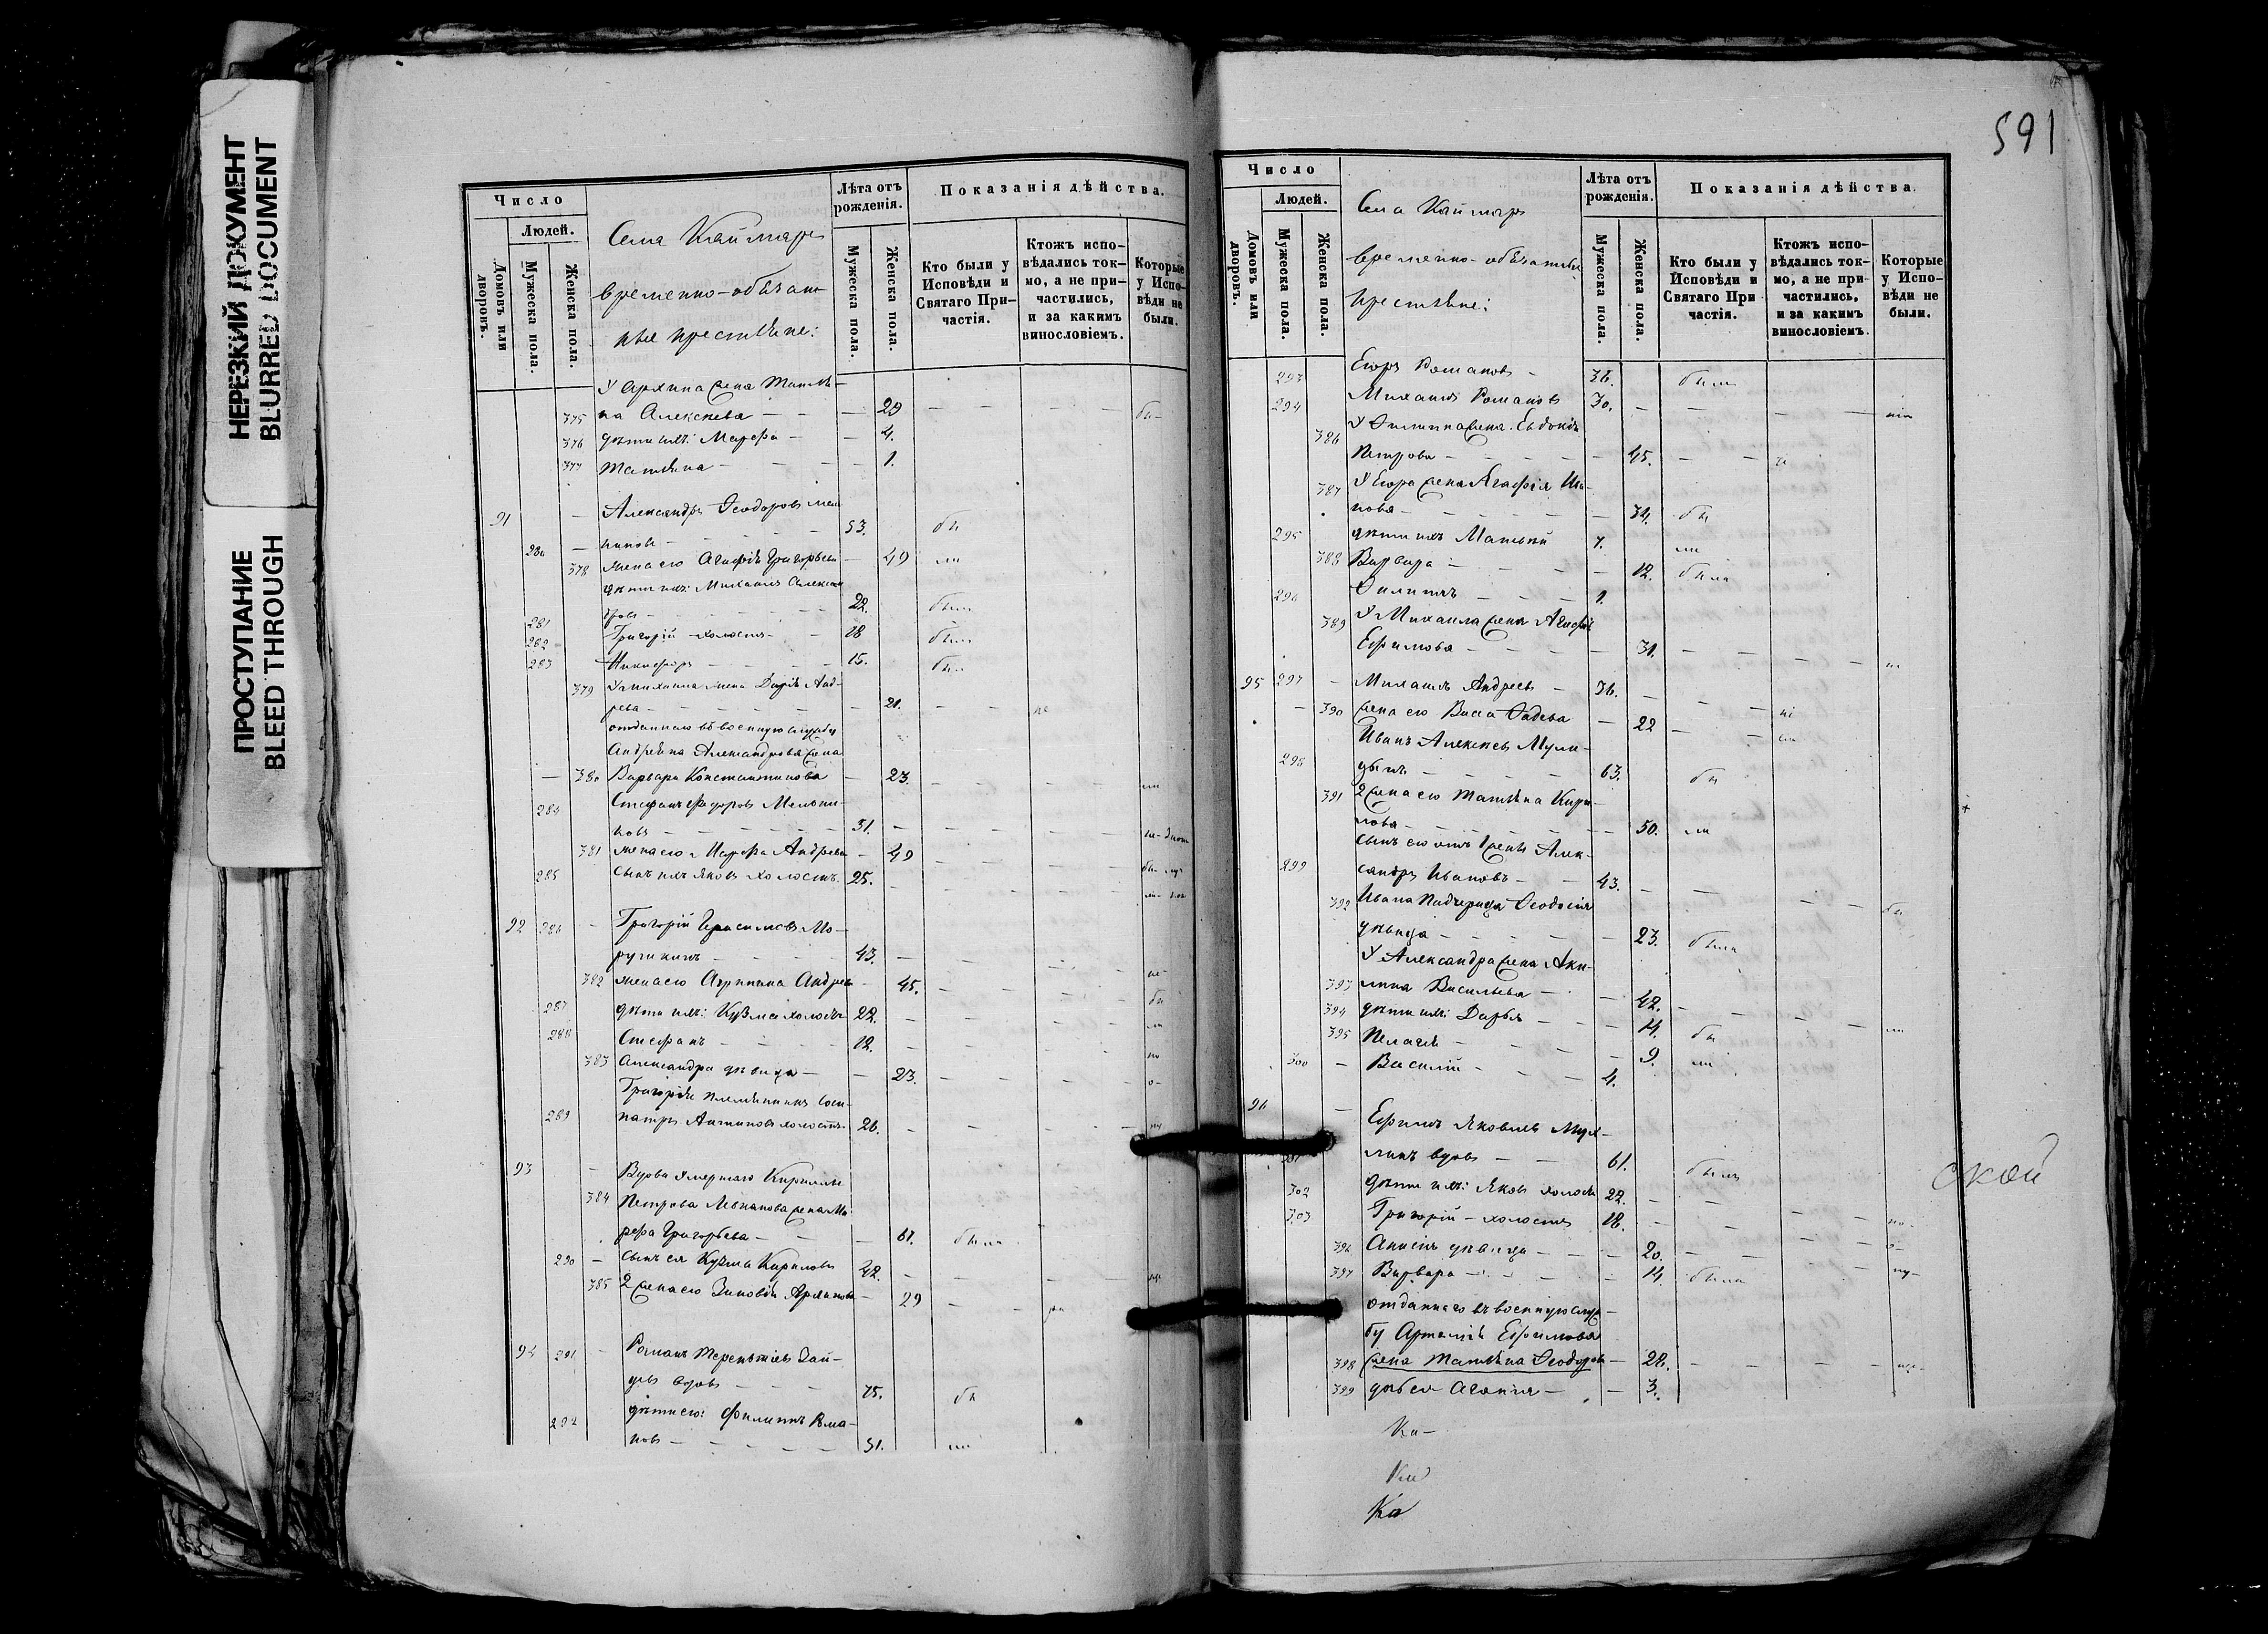 НЕРЕЗКИЙ ДОКУМЕНТ
BLURRED DOCUMENT
ПРОСТУПАНИЕ
BLEED THROUGH
Число
Людей.
Домовъ или дворовъ.
Мужеска пола.
Женска пола.
Села Каймаръ
временно-обязан-
ные крестьяне:
Лѣта отъ рожденія.
Мужеска пола.
Женска пола.
Показанія дѣйства.
Кто были у Исповѣди и Святаго При-частія.
Ктожъ испо-вѣдались ток-мо, а не при-частились, и за какимъ винословіемъ.
Которые у Испо-вѣди не были.
У Архипа жена Татья-
375 на Алексеева — — — 29 — — — —
376 дѣти ихъ: Марфа — — 4.
377 Татьяна — — — 1.
91 — Александръ Ѳеодоровъ
53. бы
378 жена его Агафья Григорьева — 49 ли
дѣти ихъ: Михаилъ Алексан-
281 дровъ — 22. былъ
282 Григорій холостъ — 18 былъ
283 Никифоръ — — 15. былъ
379 У Михаила жена Дарья Анд-
реева — — — — 21. — — не
отданнаго въ военную службу
Андреяна Александрова жена
— 380 Варвара Константинова — 23. — — — —
284 Стефанъ Федоровъ
новъ — — — — 51. — — — —
381 жена его Марфа Андреева — 49 — — — —
285 сынъ ихъ Яковъ холостъ. 25. — — — —
92 286 — Григорій Герасимовъ Мо-
43. — — — —
382 жена его Агрипина Андреева — 45. — — — бы
287 дѣти ихъ: Кузма холостъ 22. — — — — ли
288 Стефанъ — — — 12. — — — —
383 Александра дѣвица — — 23. — — — —
Григорья племянникъ Соси-
289 патръ Антиповъ холостъ 26. — — — —
93 — Вдова умершаго Кирилла
384 Петрова жена Ма-
рфа Григорьева — — 61. была
290 — сынъ ея Кузма Кириловъ 42. — — — —
385 2 жена его Зиновья Архипова — 29 — —
94 291 — Романъ Терентьевъ Зай-
цевъ вдовъ — — — 75. бы
292 дѣти его: Филиппъ Рома-
новъ — — — — 51. ли
591
Число
Людей.
Домовъ или дворовъ.
Мужеска пола.
Женска пола.
Села Каймаръ
временно-обязанные
крестьяне:
Лѣта отъ рожденія.
Мужеска пола.
Женска пола.
Показанія дѣйства.
Кто были у Исповѣди и Святаго При частія.
Ктожъ испо-вѣдались ток-мо, а не при-частились, и за какимъ винословіемъ.
Которые у Испо-вѣди не были.
293 Егоръ Романовъ — 36. былъ
294 Михаилъ Романовъ 30. — — — —
386 У Филиппа жена Евдокія
Петрова — — — — 45. — —
387 У Егора жена Агафія Ива-
нова — — — — 34. бы
295 дѣти ихъ Матвѣй 7. ли
388 Варвара — — — 12. была
296 Филиппъ — — 1.
389 У Михаила жена Агафья
Ефимова — — — 31. — — — —
95 297 — Михаилъ Андреевъ — 36. — — —
— 390 жена его Васса Фадеева — 22 — —
298 Иванъ Алексеевъ
63. бы
391 2 жена его Татьяна Кири-
лова — — — — 50. ли
299 сынъ его отъ 1 жены Алек-
сандръ Ивановъ — — 43. — — — — бы
392 Ивана Падчерица Ѳеодосія
дѣвица — — — 23. была
У Александра жена Аку-
393 лина Васильева — — 42. — — — — ли
394 дѣти ихъ: Дарья — — 14. бы
395 Пелагея — — — 9. ли
300 — Василій — — 4.
96 — Ефимъ Яковлевъ
вдовъ — — 61. былъ
302 дѣти ихъ: Яковъ холостъ 22. — — — —
303 Григорій — холостъ 18. — — — —
396 Анисія дѣвица — — — 20. — — — —
397 Варвара — — — — 14 была
отданнаго въ военную служ-
бу Артемія Ефимова
398 жена Татьяна Ѳеодорова — 28. — — — —
399 дочь ея Агафия — — 3.
ской
Ка-
Ка
Ка